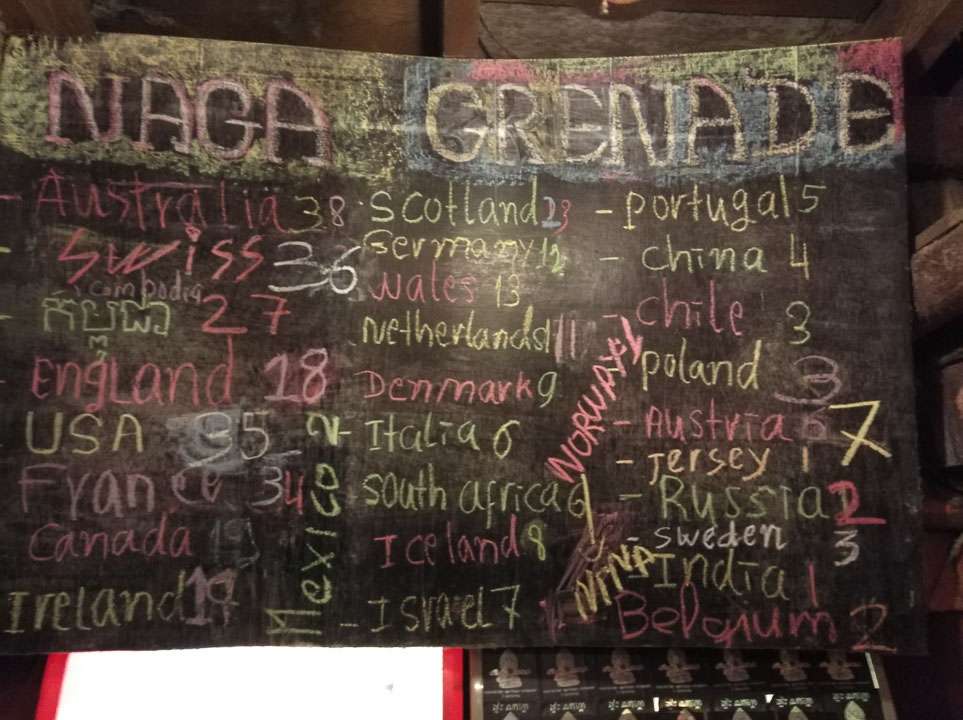 NAGA - GRENADE
- Australia 38
- Swiss 36
Cambodia
- កម្ពុជា 27
- England 18
- USA 35
France 34
Canada 19
Ireland 19
Mexico 2
Scotland 23
Germany 12
Wales 13
Netherlands 11
Denmark 9
- Italia 6
South africa 6
Iceland 8
- Israel 7
NORWAY 1
- portugal 5
- china 4
- chile 3
poland 3
- Austria 7
- Jersey 1
- Russia 2
- Sweden 3
- India 1
Belgium 2